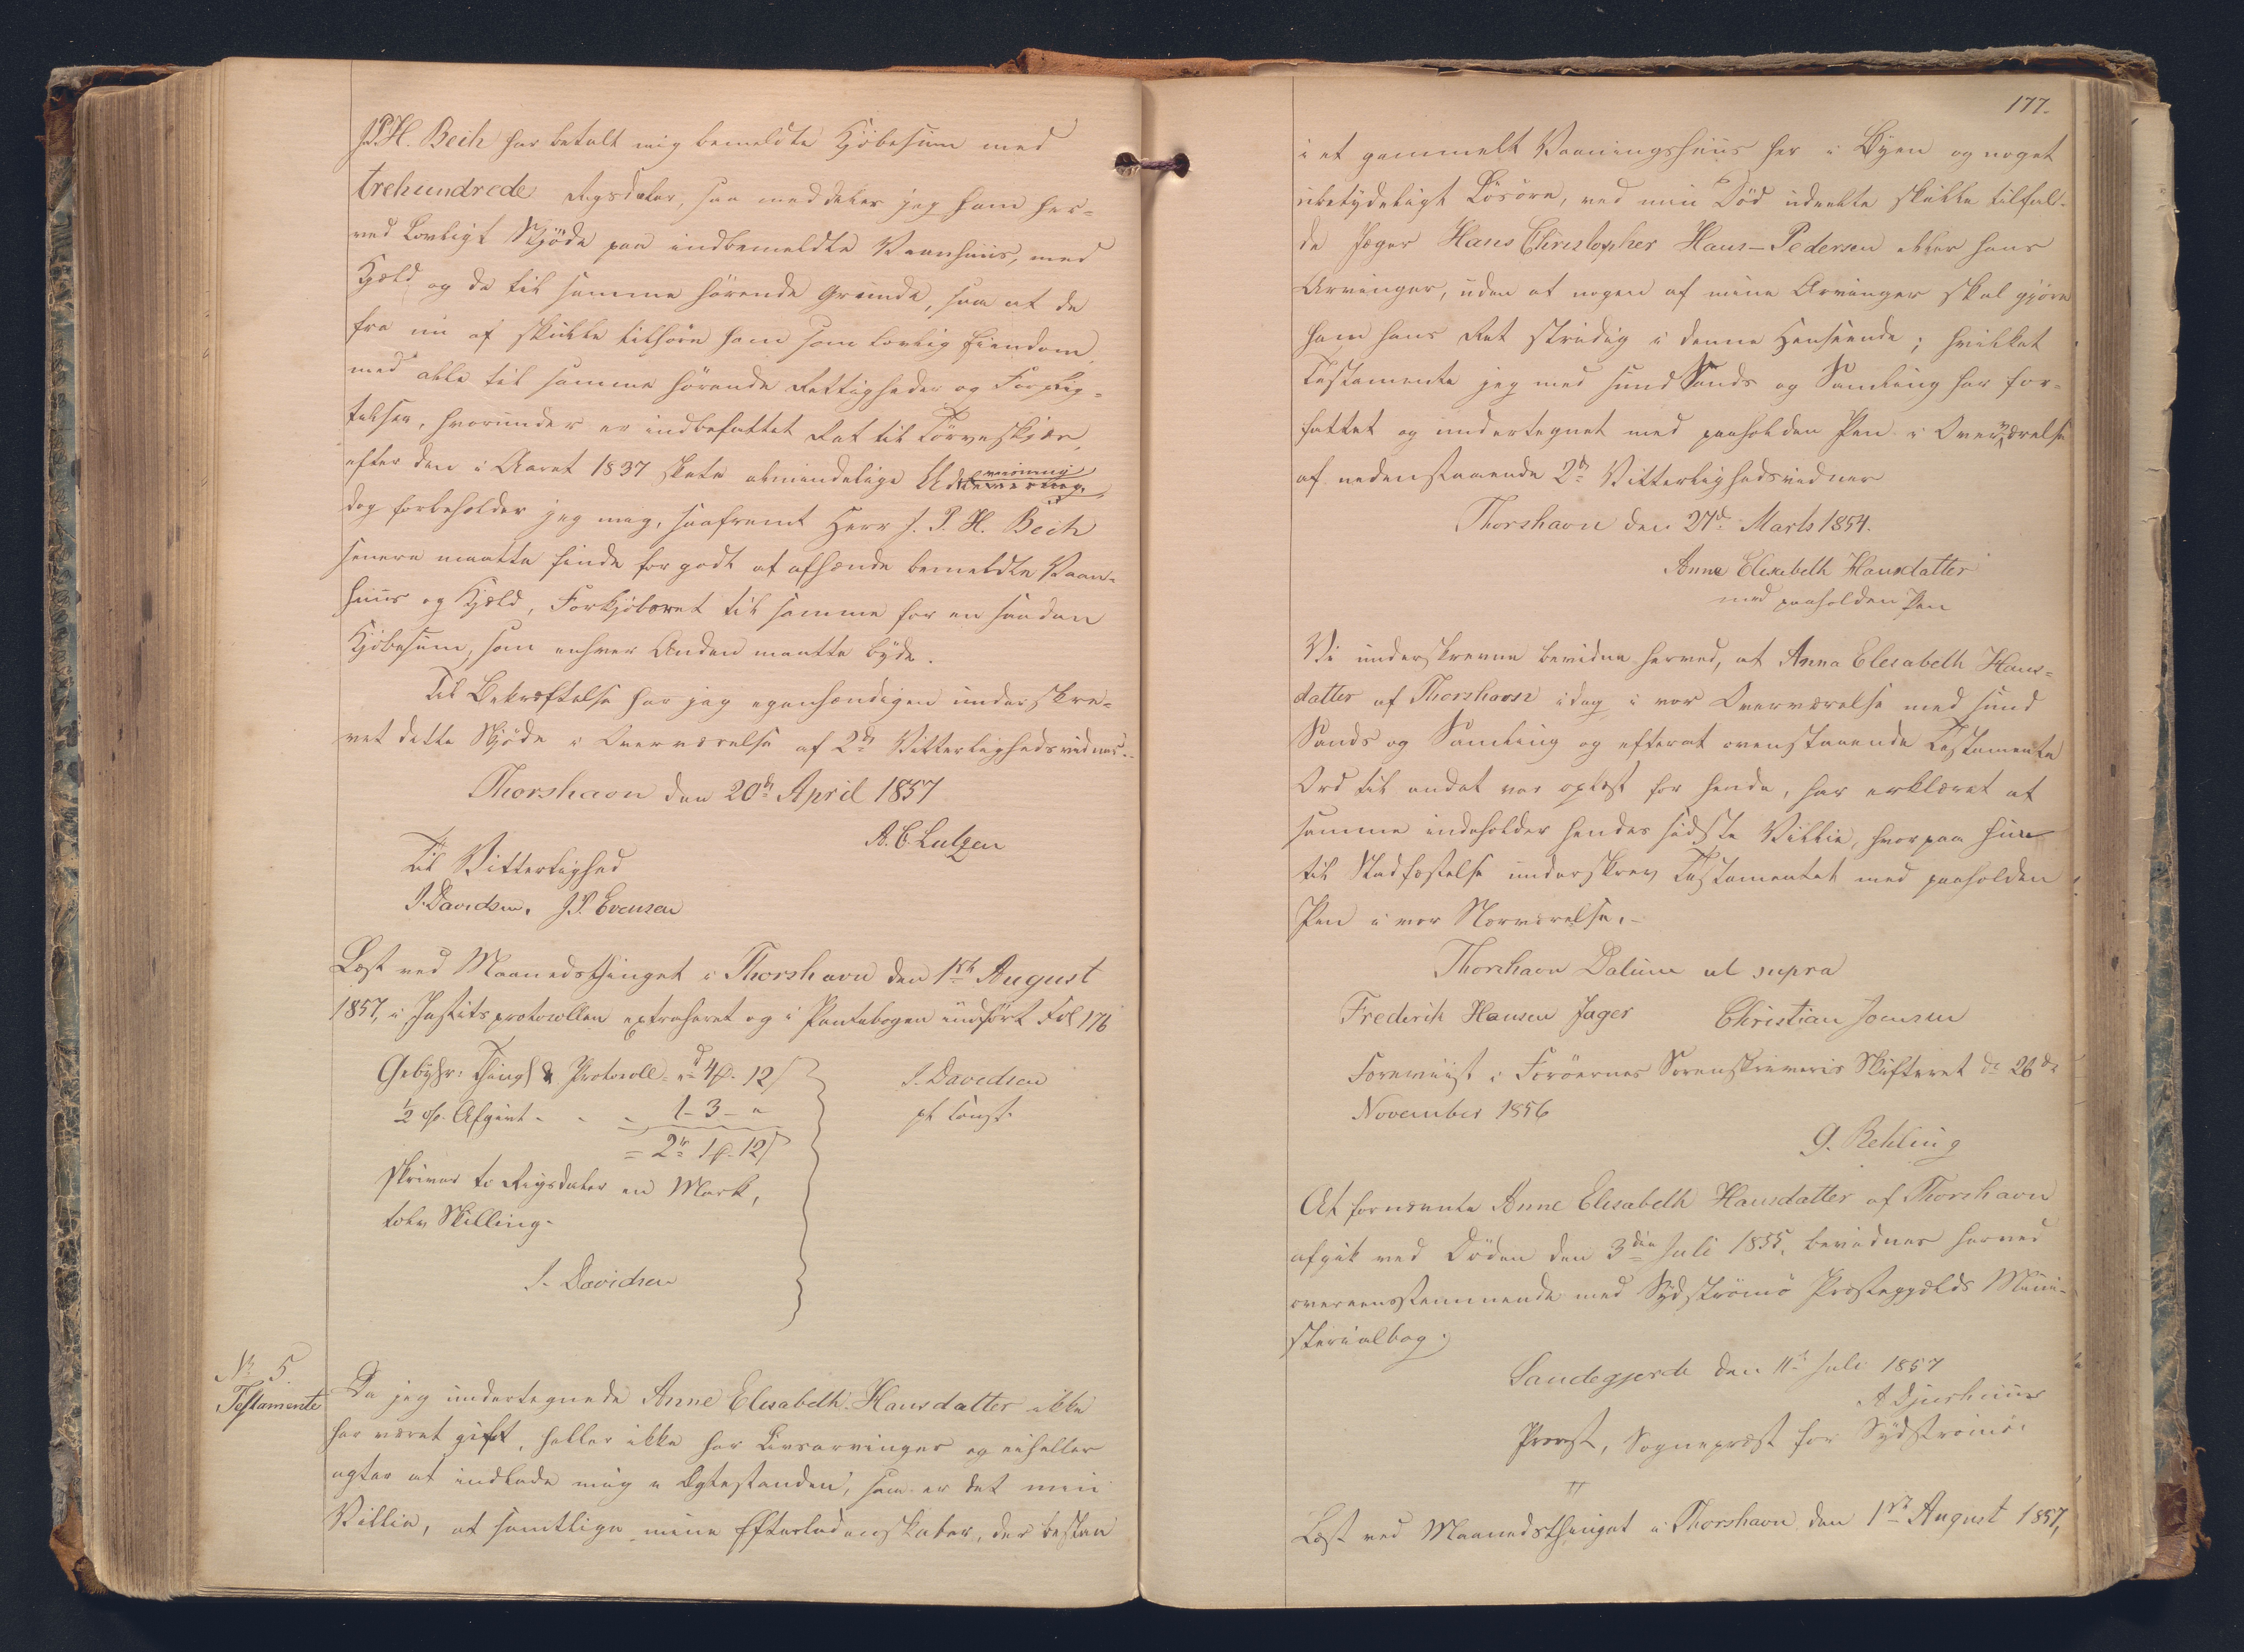 J.P.H. Bech har betalt mig bemeldte Kjöbesum med
trehundrede Rigsdaler, saa meddeler jeg ham her-
ved Lovligt Skjöde paa indbemeldte Vaanhuus, med
Hjeld og de til samme hörende Grunde, saa at de
fra nu af skulle tilhöre ham som lovlig Eiendom
med alle til samme hörende Rettigheder og Forplig-
telser, hvorunder er indbefattet Ret til Törveskjær,
efter den i Aaret 1837 skete almindelige Udviisning,
dog forbeholder jeg mig, saafremt Herr J. P. H. Bech
senere maatte finde for godt at afhænde bemeldte Vaan-
huus og Hjeld, Forkjöbsret til samme for en saadan
Kjöbesum, som enhver Anden maatte byde.
Til Bekræftelse har jeg egenhændigen underskre-
vet dette Skjöde i Overværelse af 2de Vitterlighedsvidner.
Thorshavn den 20de April 1857
A. C. Lutzen
Til Vitterlighed
J. Davidsen. J. P. Evensen
Læst ved Maanedsthinget i Thorshavn den 1ste August
1857, i Justitsprotocollen extraheret og i Pantebogen indfört Fol 176
Gebyhr: Thingl & Protocoll = rd 4 ℳ 12 ß
½ % Afgivt - - - 1 - 3 - "
= 2 rd 1 ℳ 12 ß
J. Davidsen
pt Const.
skriver to Rigsdaler en Mark,
tolv Skilling.
J. Davidsen
No 5.
Testamente
Da jeg undertegnede Anne Elesabeth Hansdatter ikke
har været gift, heller ikke har Livsarvinger og eiheller
agter at indlade mig i Ægtestanden, saa er det min
Villie, at samtlige mine Efterladenskaber, der bestaa
177.
i et gammelt Vaaningshuus her i Byen og noget
ubetydeligt Lösöre, ved min Död udeelte skulle tilfal-
de Jæger Hans Christopher Hans-Pedersen eller hans
Arvinger, uden at nogen af mine Arvinger skal gjöre
ham hans Ret stridig i denne Henseende; hvilket
Testamente jeg med sund Sands og Samling har for-
fattet og undertegnet med paaholden Pen i Overværelse
af nedenstaaende 2de Vitterlighedsvidner
Thorshavn den 27de Marts 1854.
Anne Elesabeth Hansdatter
med paaholden Pen
Vi underskrevne bevidne herved, at Anna Elesabeth Hans-
datter af Thorshavn idag i vor Overværelse med sund
Sands og Samling og efterat ovenstaaende Testamente
Ord til andet var oplæst for hende, har erklæret at
samme indeholder hendes sidste Villie, hvorpaa hun
til Stadfæstelse underskrev Testamentet med paaholden
Pen i vor Nærværelse. -
Thorshavn Datum ut supra
Frederik Hansen Jager Christian Joensen
Foreviist i Færöernes Sorenskriveris Skifteret d. 26de
November 1856
G. Rehling
At fornævnte Anne Elisabeth Hansdatter af Thorshavn
afgik ved Döden den 3die Juli 1855, bevidnes herved
overeensstemmende med Sydströmö Præstegjælds Mini-
sterialbog.
Sandegjerde den 11te Juli 1857
A Djurhuus
Provst, Sognepræst for Sydströmö.
Læst ved Maanedsthinget i Thorshavn den 1ste August 1857,